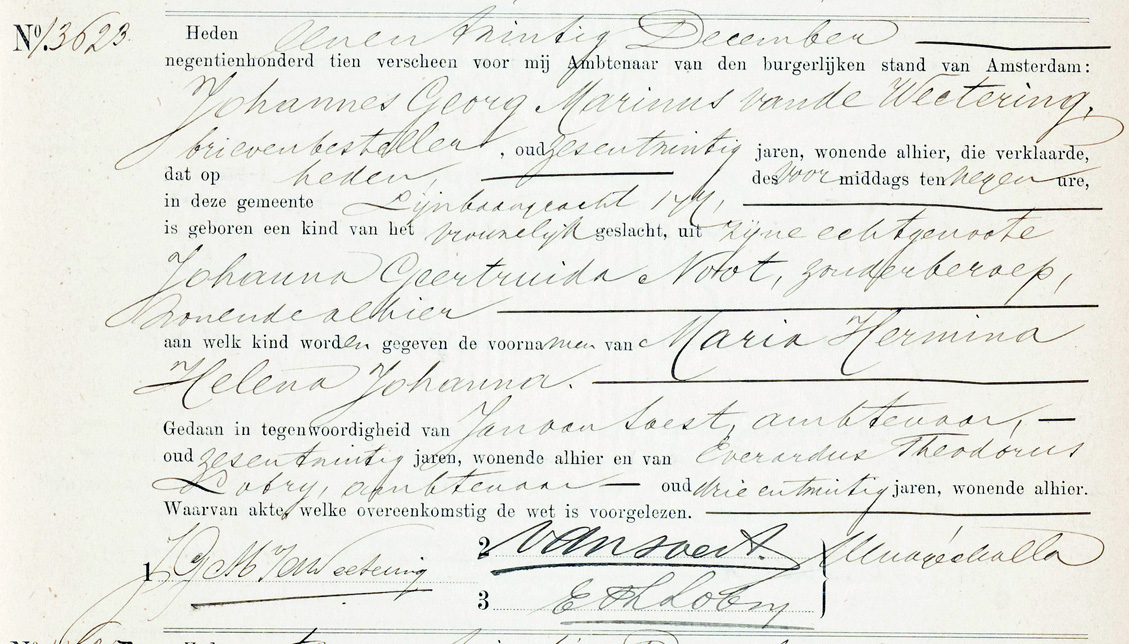 No. 13623
Heden eenentwintig December
negentienhonderd tien verscheen voor mij Ambtenaar van den burgerlijken stand van Amsterdam:
Johannes Georg Marinus van de Weetering,
brievenbesteller, oud zesentwintig jaren, wonende alhier, die verklaarde,
dat op heden, des voormiddags ten negen ure,
in deze gemeente Lijnbaansgracht
is geboren een kind van het vrouwelijk geslacht, uit zijne echtgenoote
Johanna Geertruida Noot, zonder beroep,
wonende alhier
aan welk kind worden gegeven de voornamen van Maria Hermina
Helena Johanna.
Gedaan in tegenwoordigheid van Jan van Soest, ambtenaar,
oud zesentwintig jaren, wonende alhier en van Everardus Theodorus
Lobry, ambtenaar oud drieentwintig jaren, wonende alhier.
Waarvan akte, welke overeenkomstig de wet is voorgelezen.
1 JGM vd Weetering
2 van Soest.
3 E Th Lobry